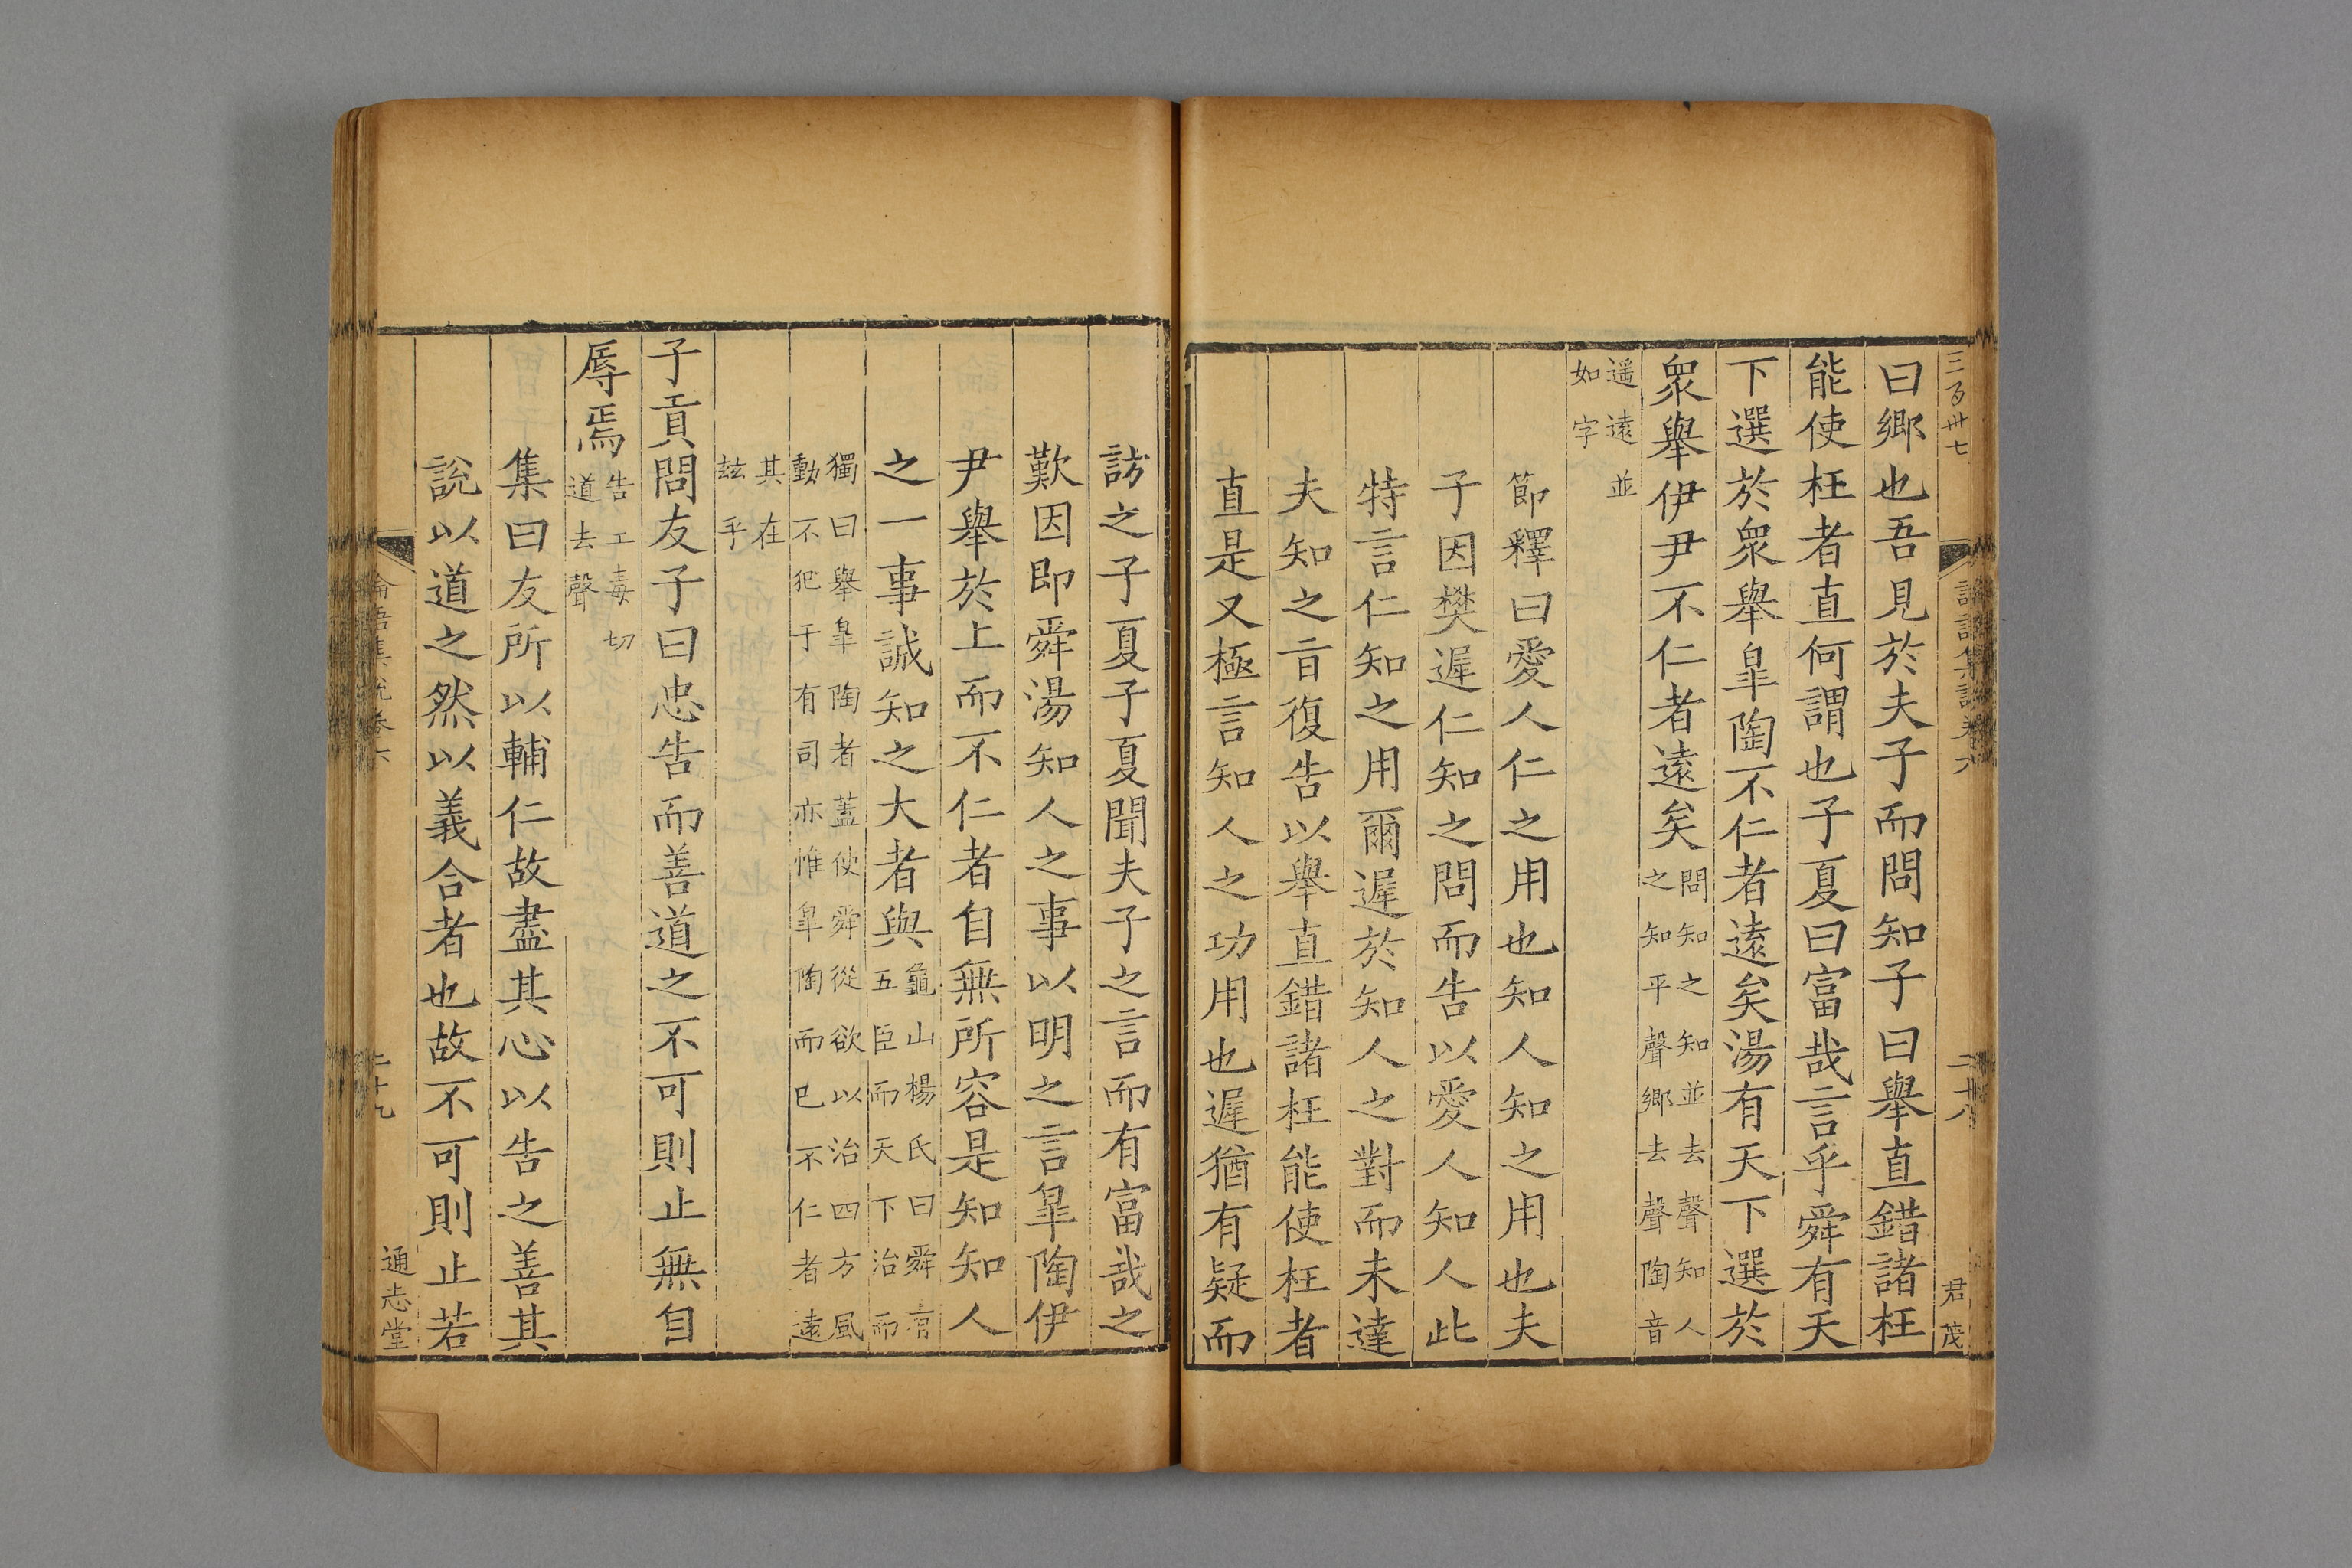 三百卅七
論語集說卷六
二十八
君茂
曰鄉也吾見於夫子而問知子曰舉直錯諸枉
能使枉者直何謂也子夏曰富哉言乎舜有天
下選於衆舉皐陶不仁者遠矣湯有天下選於
衆舉伊尹不仁者遠矣
問知之知並去聲知人
之知平聲鄉去聲陶音
遥遠並
如字
節釋曰愛人仁之用也知人知之用也夫
子因樊遲仁知之問而告以愛人知人此
特言仁知之用爾遲於知人之對而未達
夫知之旨復告以舉直錯諸枉能使枉者
直是又極言知人之功用也遲猶有疑而
訪之子夏子夏聞夫子之言而有富哉之
歎因即舜湯知人之事以明之言皐陶伊
尹舉於上而不仁者自無所容是知知人
之一事誠知之大者與
龜山楊氏曰舜有
五臣而天下治而
獨曰舉皐陶者蓋使舜從欲以治四方風
動不犯于有司亦惟皐陶而已不仁者遠
其在
兹乎
子貢問友子曰忠告而善道之不可則止無自
辱焉
告工毒切
道去聲
集曰友所以輔仁故盡其心以告之善其
說以道之然以義合者也故不可則止若
論語集說卷六
二十九
通志堂